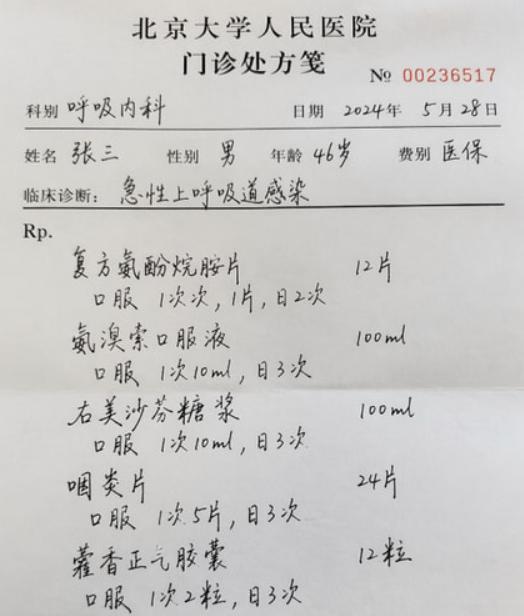 北京大学人民医院
门诊处方笺
№ 00236517
科别 呼吸内科 日期 2024年 5月28日
姓名 张三 性别 男 年龄 46岁 费别 医保
临床诊断: 急性上呼吸道感染
Rp.
复方氨酚烷胺片 12片
口服 1次次, 1片, 日2次
氨溴索口服液 100ml
口服 1次10ml, 日3次
右美沙芬糖浆 100ml
口服 1次10ml, 日3次
咽炎片 24片
口服 1次5片, 日3次
藿香正气胶囊 12粒
口服 1次2粒, 日3次